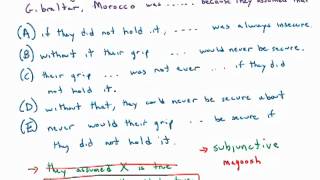 Gibraltar, Morocco was ..... because they assumed that
(A) if they did not hold it, .... was always insecure.
(B) without it their grip ... would never be secure.
(C) their grip ... was not ever ... if they did
not hold it.
(D) without that, they could never be secure about
(E) never would their grip ... be secure if
they did not hold it.
subjunctive
magoosh
→ they assumed X is true